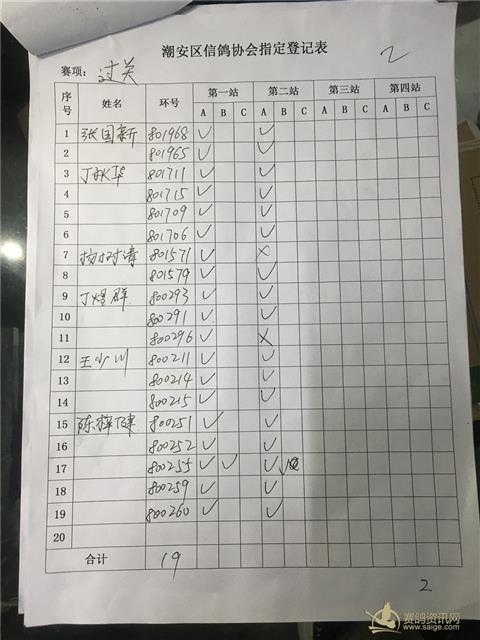 潮安区信鸽协会指定登记表
2
赛项：过关
序号 姓名 环号 第一站 第二站 第三站 第四站
A B C A B C A B C A B C
1 张国新 801968 ✓ ✓
2 801965 ✓ ✓
3 丁秋华 801711 ✓ ✓
4 801715 ✓ ✓
5 801709 ✓ ✓
6 801706 ✓ ✓
7 杨树清 801571 ✓ ×
8 801579 ✓ ✓
9 丁煜群 800293 ✓ ✓
10 800291 ✓ ✓
11 800296 ✓ ×
12 王少川 800211 ✓ ✓
13 800214 ✓ ✓
14 800215 ✓ ✓
15 陈梓健 800251 ✓ ✓
16 800252 ✓ ✓
17 800255 ✓ ✓ ✓ ✓
18 800259 ✓ ✓
19 800260 ✓ ✓
20
合计 19
2
赛鸽资讯网
www.saige.com